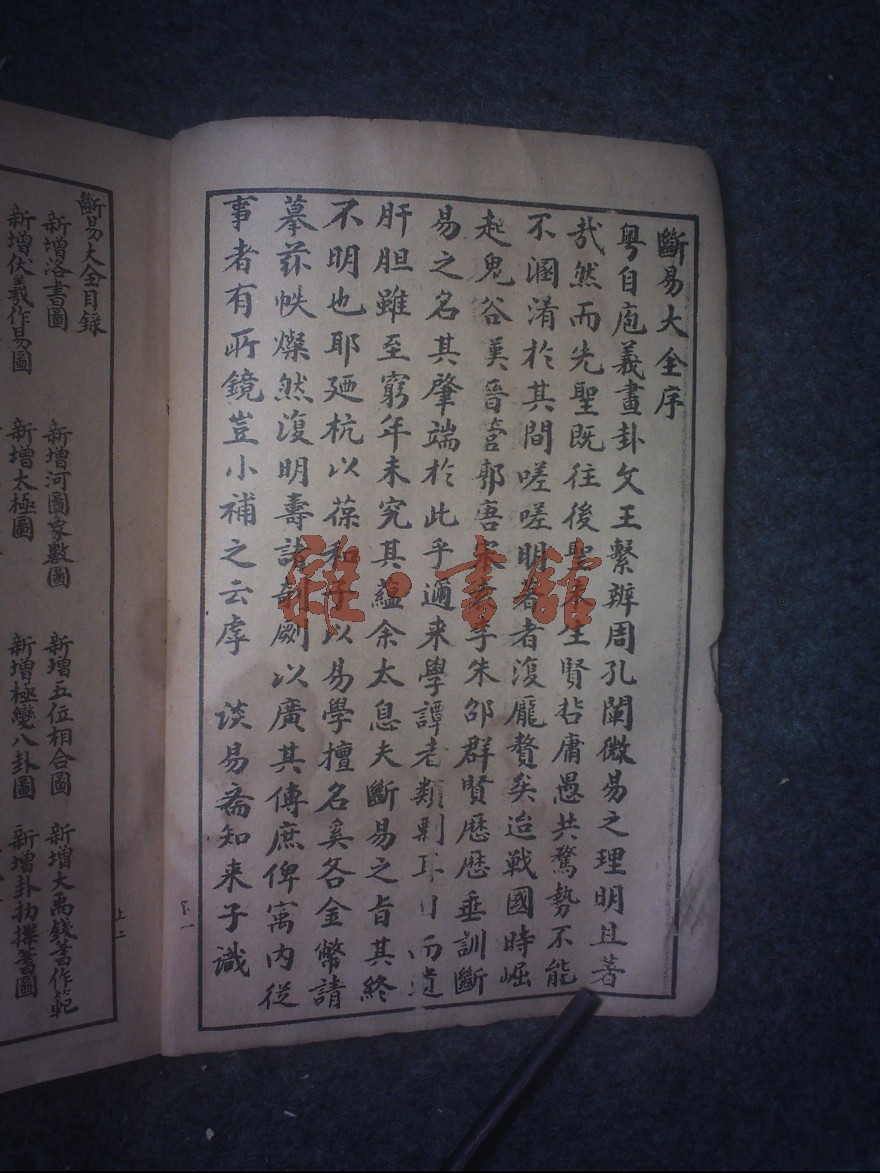 斷易大全序
粤自庖義畫卦文王繫辤周孔闡微易之理明且著
哉然而先聖既往後聖未生賢拈庸愚共騖勢不能
不溷淆於其間嗟嗟明者復厖贅矣迨戰國時崛
起鬼谷漢晉管郭唐宋袁李朱邵群賢歷歷垂訓斷
易之名其肇端於此乎邇来學譚老類剽耳目而遺
肝胆雖至窮年未究其蘊余太息夫斷易之旨其終
不明也耶廼杭以葆和子以易學擅名奚各金幣請
摹茲帙燦然復明壽諸剞劂以廣其傳庶俾寓內從
事者有所鏡豈小補之云虖 談易齋知来子識
下一
斷易大全目録
新增洛書圖 新增河圖象數圖 新增五位相合圖 新增大禹錢蓍作範
新增伏羲作易圖 新增太極圖 新增極變八卦圖 新增卦扐揲蓍圖
上二
雜·書館